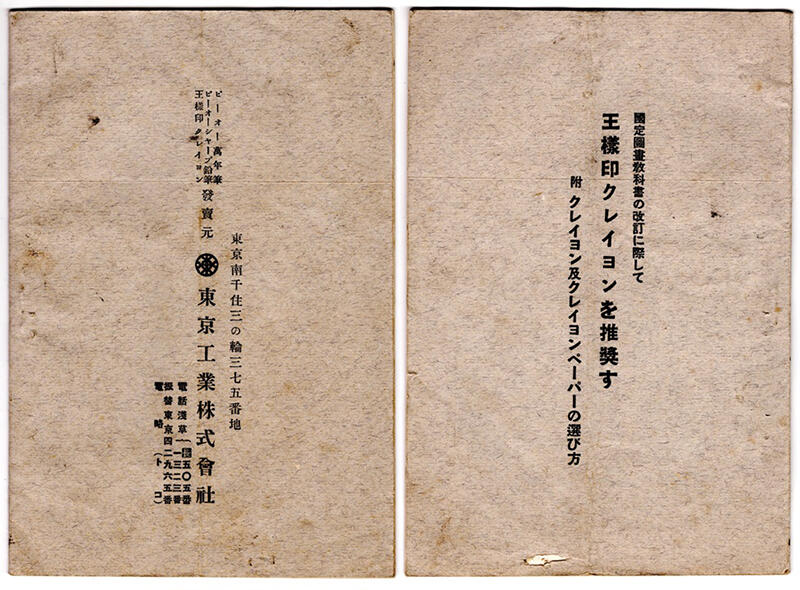 國定圖畫敎科書の改訂に際して
王樣印クレイヨンを推奬す
附 クレイヨン及クレイヨンペーパーの選び方
東京南千住三の輪三七五番地
ピーオー萬年筆
ピーオーシャープ鉛筆
王樣印クレイヨン
發賣元
東京工業株式會社
電話淺草 五〇五番
一三二三番
振替東京四二九六五番
電略(トコ)